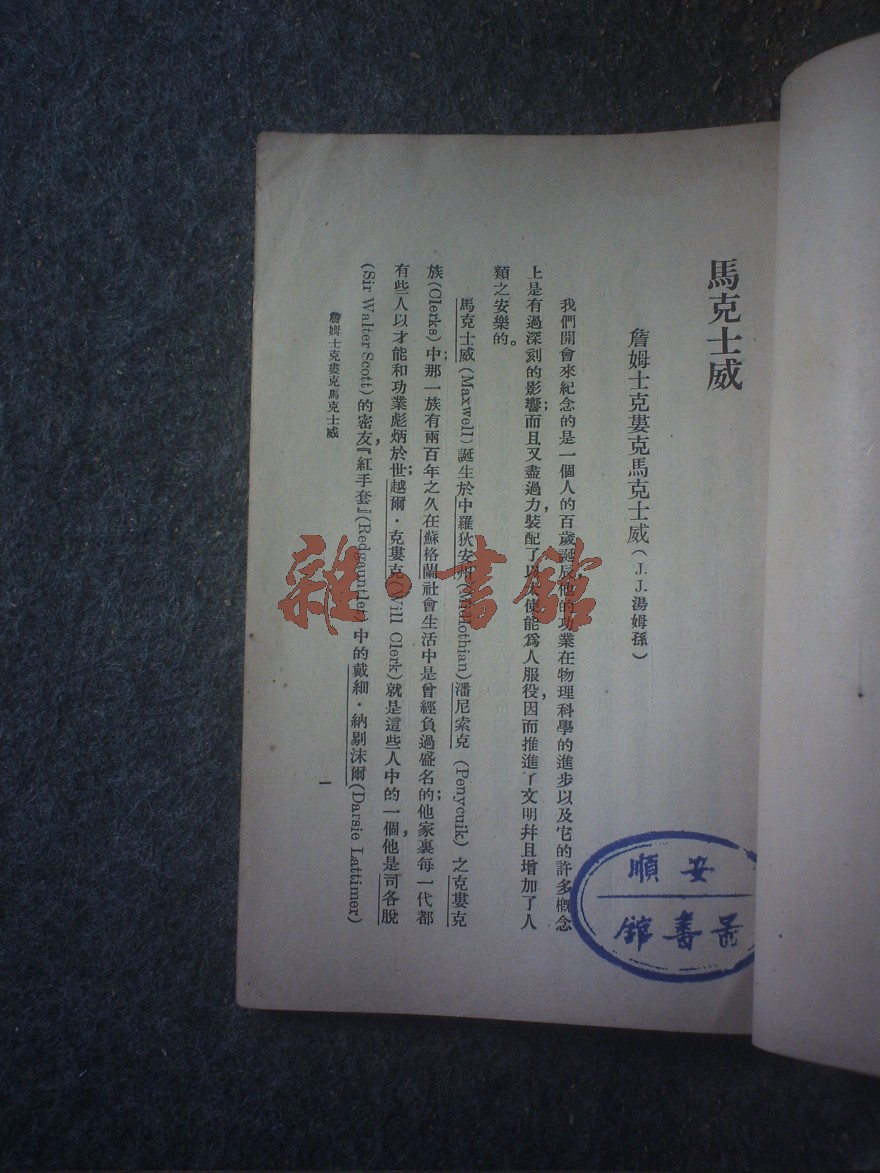 馬克士威
詹姆士克婁克馬克士威（J.J.湯姆孫）
我們開會來紀念的是一個人的百歲誕辰，他的功業在物理科學的進步以及它的許多概念
上是有過深刻的影響；而且又盡過力裝配了以太使能爲人服役，因而推進了文明幷且增加了人
類之安樂的。
馬克士威(Maxwell)誕生於中羅狄安州(Midlothian)潘尼索克(Penycuik)之克婁克
族(Clerks)中；那一族有兩百年之久在蘇格蘭社會生活中是曾經負過盛名的，他家裏每一代都
有些人以才能和功業彪炳於世；越爾·克婁克(Will Clerk)就是這些人中的一個，他是司各脫
(Sir Walter Scott)的密友，『紅手套』(Redgauntlet)中的戴細·納剔沫爾(Darsie Lattimer)
詹姆士克婁克馬克士威
一
安順
圖書館
雜·書館